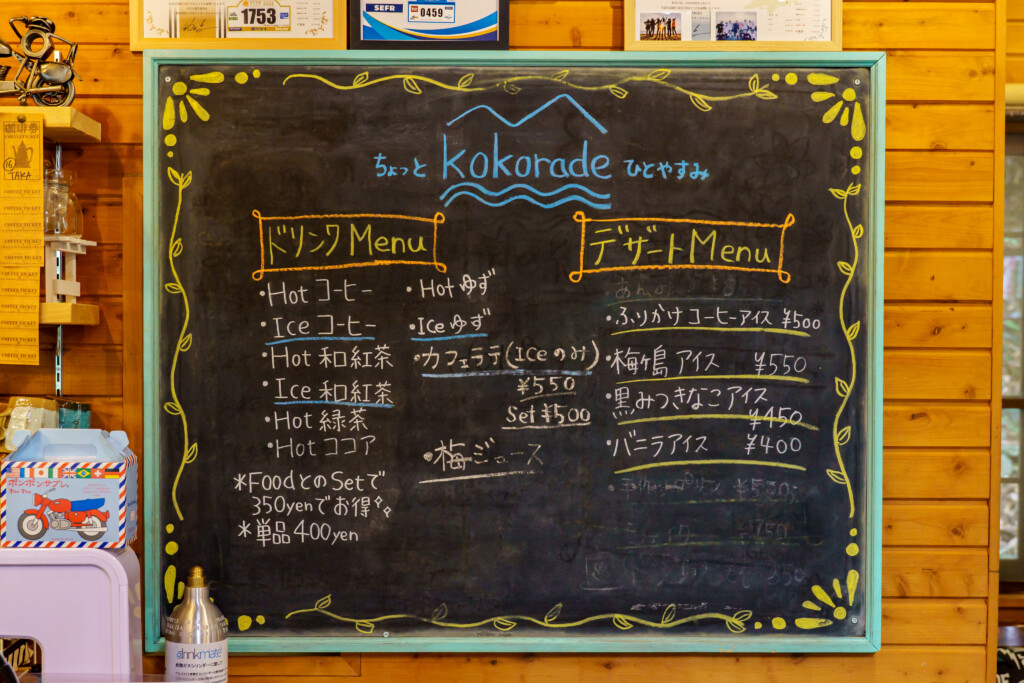 1753
SEFR
0459
珈琲券
COFFEE TICKET
16
TAKA
COFFEE TICKET
COFFEE TICKET
COFFEE TICKET
COFFEE TICKET
COFFEE TICKET
COFFEE TICKET
COFFEE TICKET
ちょっと kokorade ひとやすみ
ドリンク Menu
・Hot コーヒー
・Ice コーヒー
・Hot 和紅茶
・Ice 和紅茶
・Hot 緑茶
・Hot ココア
*FoodとのSetで
350yenでお得
*単品400yen
・Hot ゆず
・Ice ゆず
・カフェラテ(Iceのみ)
¥550
Set ¥500
・梅ジュース
デザートMenu
・ふりかけ コーヒーアイス ¥500
・梅ヶ島 アイス ¥550
・黒みつきなこ アイス
¥450
・バニラアイス ¥400
ポンポンサブレ
drinkmate